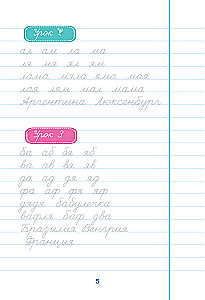 Урок 2
ал ам ла ма
ля мя ял ям
лама мяла яма мая
лая лям мал мама
Аргентина Люксембург
Урок 3
ба аб бя яб
ва ав вя яв
да ад дя яд
фа аф фя яф
дядя бабулечка
вафля баф два
Бразилия Венгрия
Франция
5